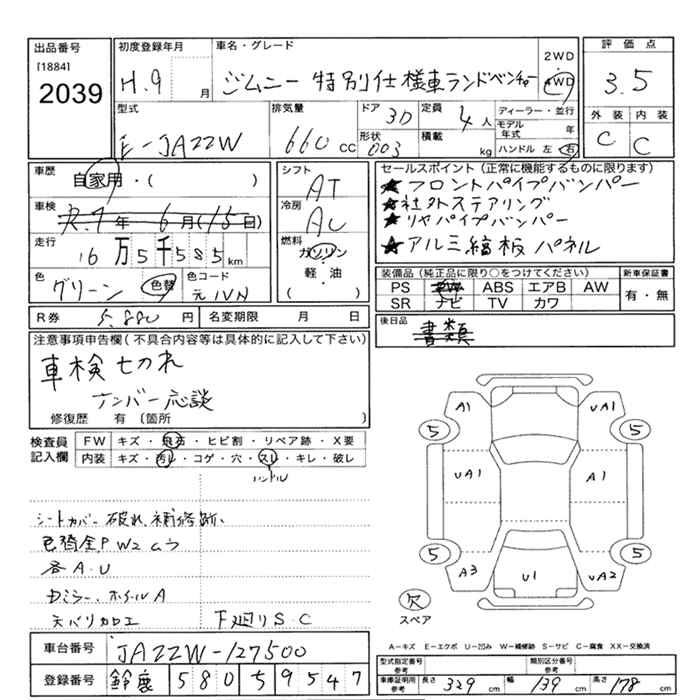 出品番号 初度登録年月 車名・グレード 2WD 評価点
[1884] 2039 H.9 月 ジムニー 特別仕様車ランドベンチャー 4WD 3.5
型式 排気量 ドア 3D 定員 4人 ディーラー・並行 外装 内装
モデル年式 年
E-JA22W 660cc 形状 003 積載 kg ハンドル 左 右 C C
車歴 自家用・( ) シフト AT セールスポイント(正常に機能するものに限ります)
★フロントパイプバンパー
車検 R.7年 6月(15日) 冷房 AC ★社外ステアリング
★リヤパイプバンパー
走行 16万5千585km 燃料 ガソリン ★アルミ縞板パネル
軽・油
( )
色 グリーン 色替 色コード 元1VN 装備品(純正品に限り○をつけてください) 新車保証書
PS PW ABS エアB AW 有・無
SR ナビ TV カワ
R券 5,880円 名変期限 月 日 後日品 書類
注意事項申告欄(不具合内容等は具体的に記入して下さい)
車検切れ
ナンバー応談
修復歴 有(箇所 )
検査員記入欄 FW キズ・飛石・ヒビ割・リペア跡・X要
内装 キズ・汚レ・コゲ・穴・スレ・キレ・破レ
ハンドル
シートカバー破れ、補修跡、
各A.U
ホイールA
下廻りS.C
A1 UA1
5 5
UA1 A1
5 5
A3 U1 UA2
欠
スペア
A-キズ E-エクボ U-凹み W-補修跡 S-サビ C-腐食 XX-交換済
車台番号 JA22W-127500 型式指定番号 参考 類別区分番号 参考
登録番号 鈴鹿 580 59547 車庫証明用 参考 長さ 329cm 幅 139cm 高さ 178cm